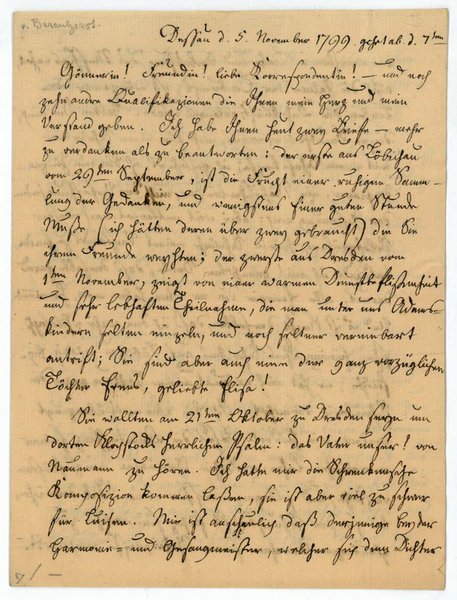 v. Berenhorst.
Dessau d. 5. November 1799 geht ab d. 7ten
Gönnerin! Freundin! liebe Korrespondentin! – und noch
zehn andre Qualifikazionen die Ihnen mein Herz und mein
Verstand geben. Ich habe Ihnen heut zwey Briefe – mehr
zu verdanken als zu beantworten: der erste aus Löbichau
vom 29ten September, ist die Frucht einer ruhigen Samm-
lung der Gedanken, und wenigstens Einer guten Stunde
Muße (ich hätten deren über zwey gebraucht) die Sie
ihrem Freunde weyhten; der zweyte aus Dresden vom
1ten November, zeigt von einer warmen Dienstbeflißenheit
und sehr lebhaften Theilnahme, die man unter uns Adams-
kindern selten einzeln, und noch seltner vereinbart
antrift; Sie sind aber auch eine der ganz vorzüglichen
Töchter Evens, geliebte Elisa!
Sie wollten am 21ten Oktober zu Dresden seyn um
dorten Klopstoks herrlichen Psalm: das Vater unser! von
Naumann zu hören. Ich hatte mir die Schwenkensche
Komposizion kommen laßen, sie ist aber viel zu schwer
für Luisen. Mir ist anschaulich daß derjenige beyder
Harmonie- und Gesangmeister, welcher sich dem Dichter